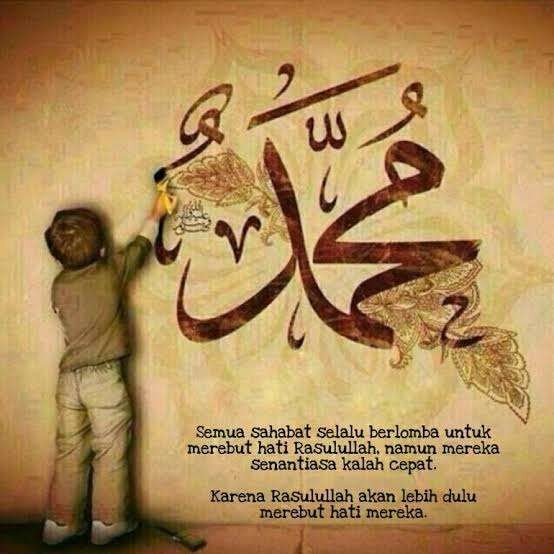 مُحَمَّدٌ
ﷺ
Semua sahabat selalu berlomba untuk
merebut hati Rasulullah, namun mereka
senantiasa kalah cepat.
Karena Rasulullah akan lebih dulu
merebut hati mereka.